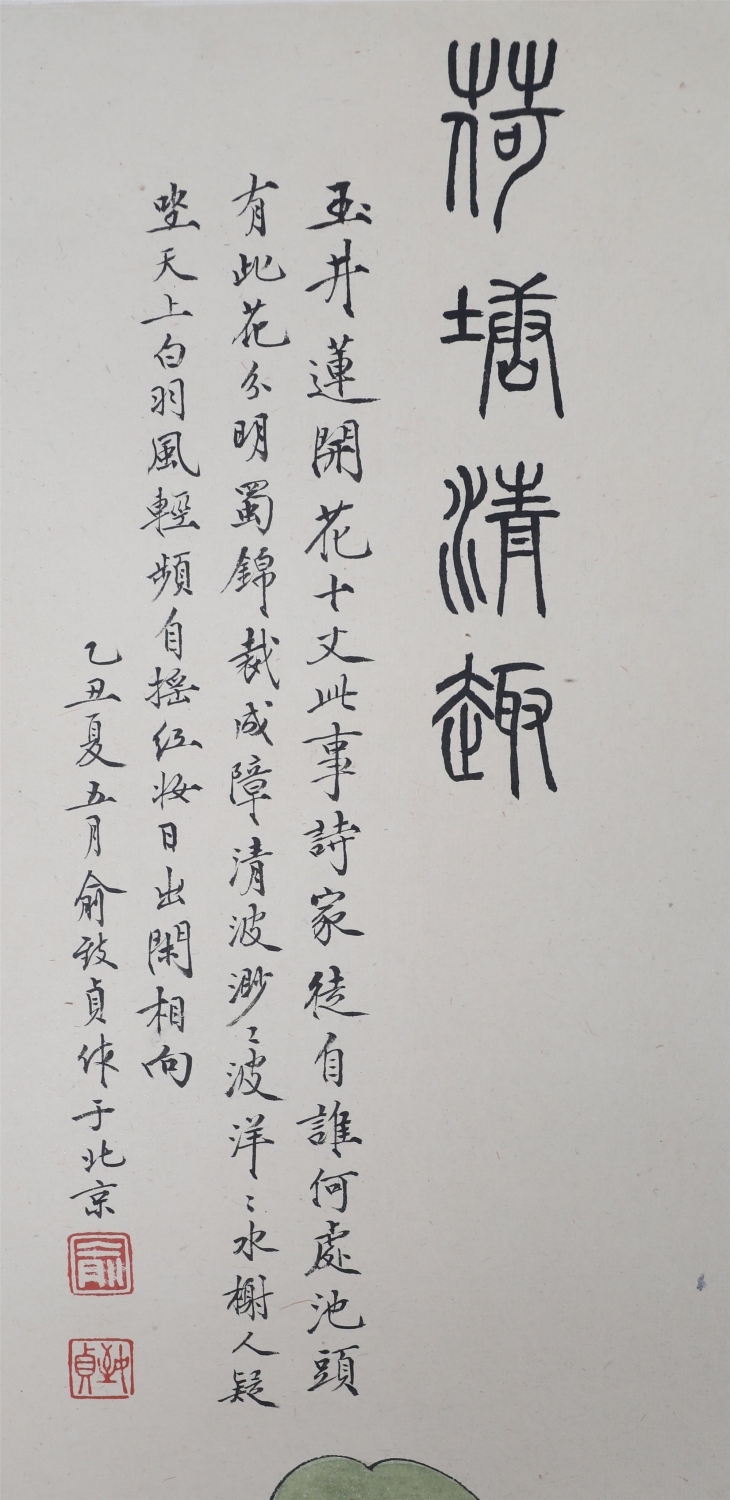 荷塘清趣
玉井蓮開花十丈此事詩家徒自誰何處池頭
有此花分明蜀錦裁成障清波渺〻波洋〻水榭人疑
坐天上白羽風輕頻自搖紅妝日出閑相向
乙丑夏五月俞致貞作于北京
俞
致貞